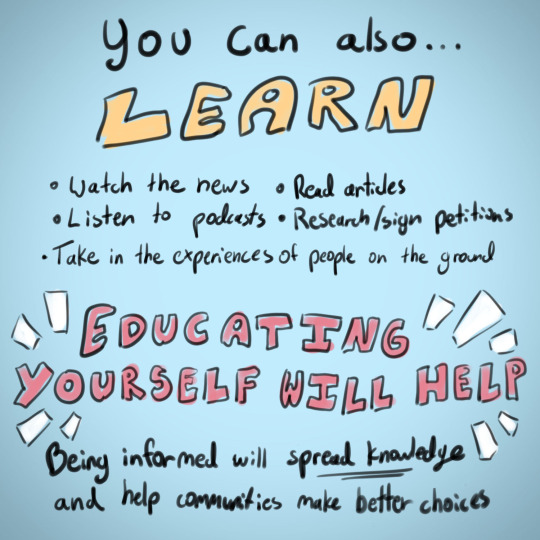 You can also...
LEARN
• Watch the news • Read articles
• Listen to podcasts • Research/sign petitions
• Take in the experiences of people on the ground
EDUCATING
YOURSELF WILL HELP
Being informed will spread knowledge
and help communities make better choices